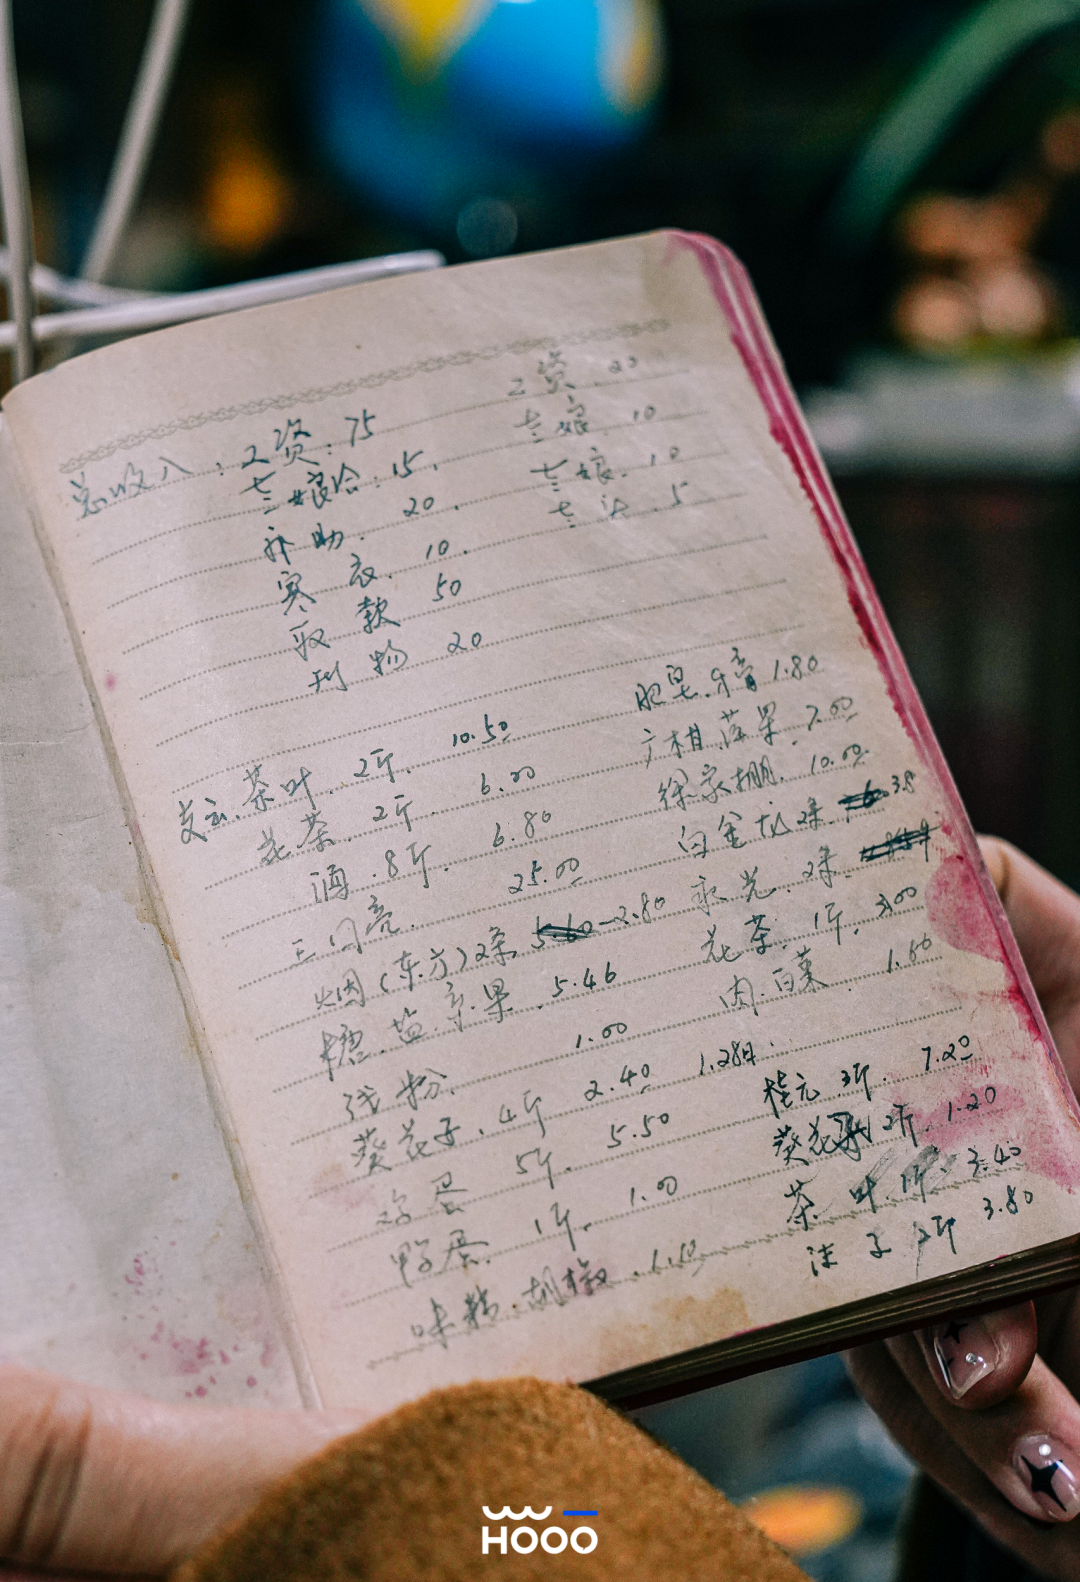 总收入：工资：75
娘给：15.
补助. 20.
寒衣. 10.
取款 50
刊物 20
工资. 20
娘. 10
娘. 10
5
支出. 茶叶. 2斤. 10.50
花茶. 2斤. 6.00
酒. 8斤. 6.80
25.00
烟(东方)2条 5.60-2.80
糖. 盐. 京果. 5.46
线粉. 1.00
葵花子. 4斤 2.40
鸡蛋 5斤. 5.50
鸭蛋. 1斤. 1.00
味精. 胡椒.
肥皂. 牙膏 1.80
广柑. 苹果. 7.00
徐家棚. 10.00
白金龙2条 3.8
永光. 2条.
花茶. 1斤. 3.00
肉. 白菜.
1.28日.
桂元. 3斤. 7.20
葵花 2斤. 1.20
茶叶. 1斤. 3.40
2斤 3.80
HOOO